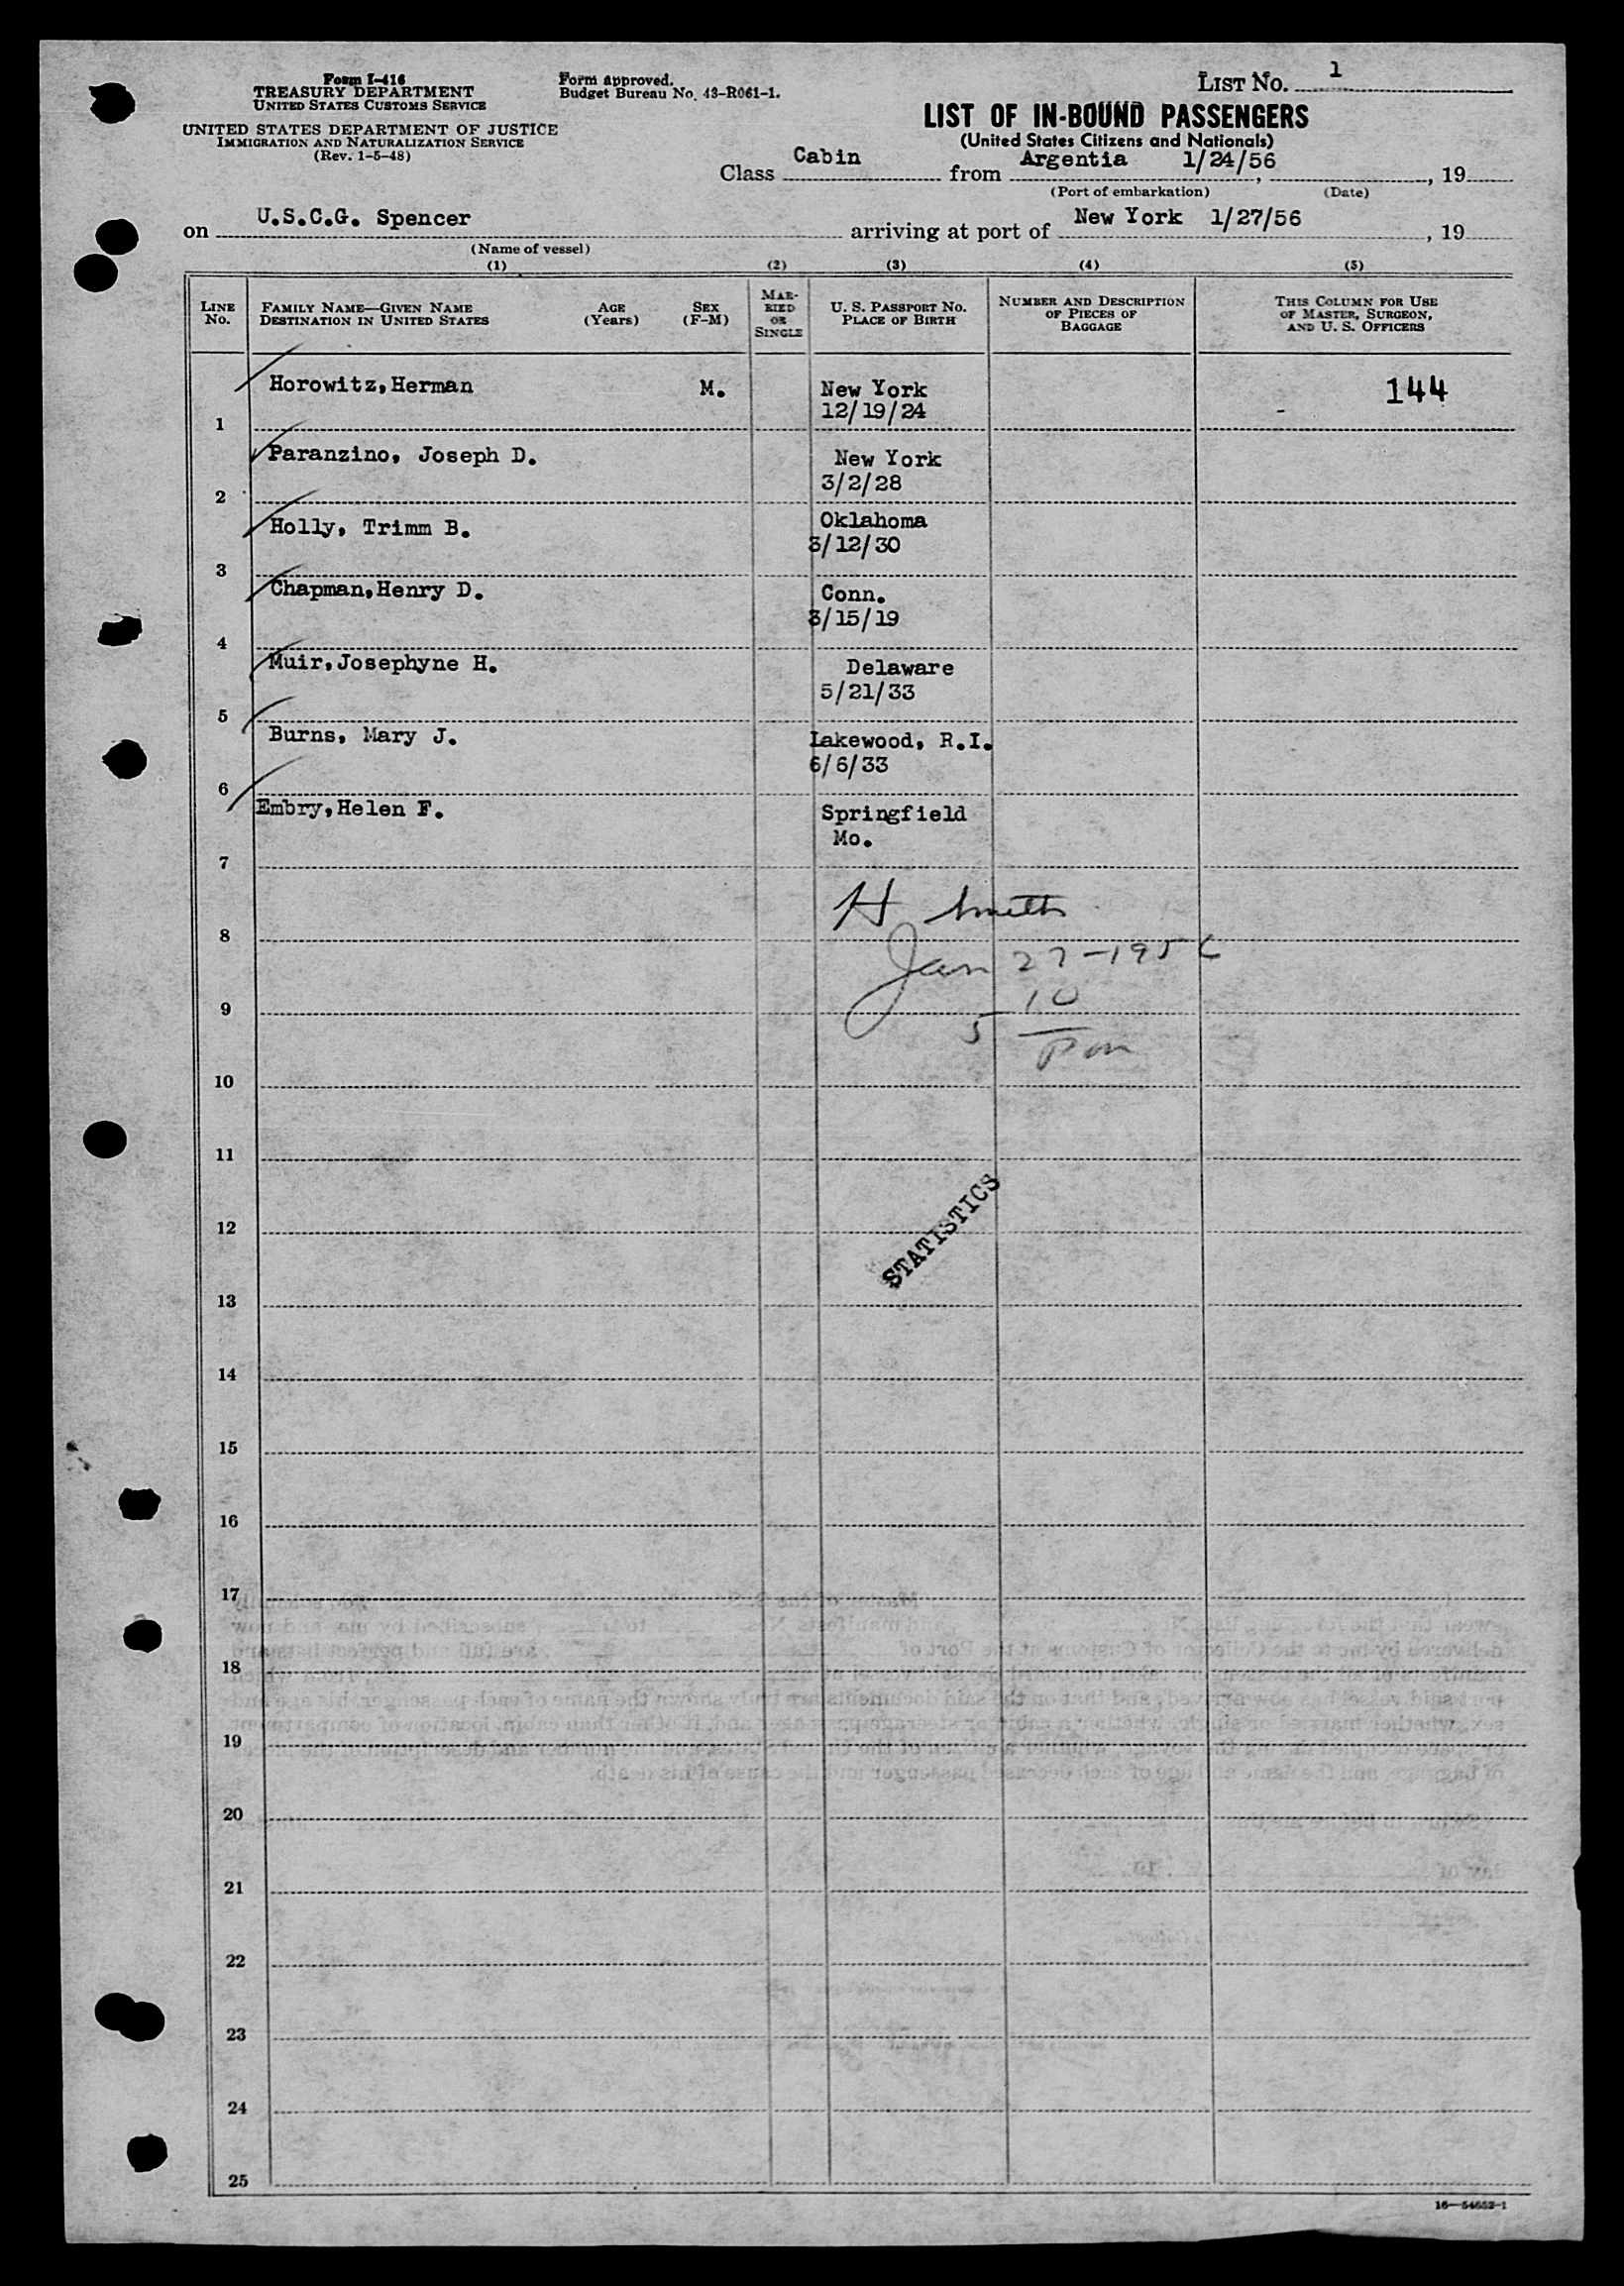 Form I-416
TREASURY DEPARTMENT
UNITED STATES CUSTOMS SERVICE
UNITED STATES DEPARTMENT OF JUSTICE
IMMIGRATION AND NATURALIZATION SERVICE
(Rev. 1-5-48)
Form approved.
Budget Bureau No. 43-R061-1.
LIST NO. 1
LIST OF IN-BOUND PASSENGERS
(United States Citizens and Nationals)
Class Cabin from Argentia 1/24/56, 19
(Port of embarkation) (Date)
on U.S.C.G. Spencer arriving at port of New York 1/27/56, 19
(Name of vessel)
(1) (2) (3) (4) (5)
LINE NO.
FAMILY NAME—GIVEN NAME
DESTINATION IN UNITED STATES
AGE (Years)
SEX (F-M)
MARRIED OR SINGLE
U. S. PASSPORT NO.
PLACE OF BIRTH
NUMBER AND DESCRIPTION
OF PIECES OF
BAGGAGE
THIS COLUMN FOR USE
OF MASTER, SURGEON,
AND U. S. OFFICERS
Horowitz,Herman M. New York 144
1 12/19/24
Paranzino, Joseph D. New York
2 3/2/28
Holly, Trimm B. Oklahoma
3 3/12/30
Chapman,Henry D. Conn.
4 3/15/19
Muir,Josephyne H. Delaware
5 5/21/33
Burns, Mary J. Lakewood, R.I.
6 6/6/33
Embry,Helen F. Springfield
7 Mo.
H Smith
8
Jan 27-1956
9
10
5
Pm
10
11
12
STATISTICS
13
14
15
16
17
18
19
20
21
22
23
24
25
16—54652-1